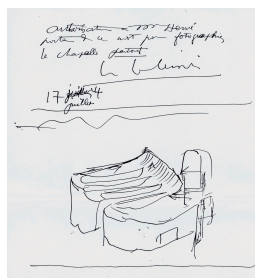 autorisation à Mr Hervé
porteur de ce mot pour fotographier
la chapelle partout
17 juillet
juillet